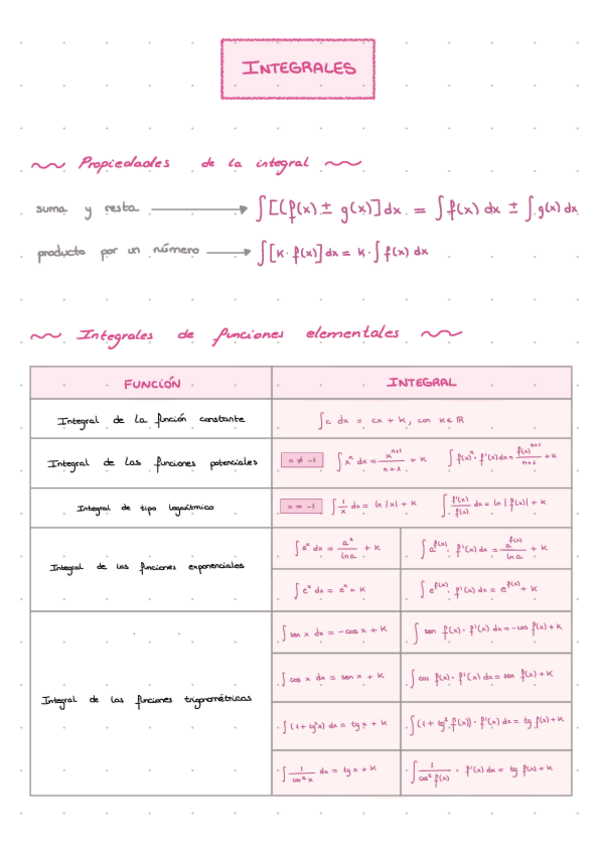 INTEGRALES
Propiedades de la integral
suma y resta → ∫[(f(x) ± g(x)] dx = ∫f(x) dx ± ∫g(x) dx
producto por un número → ∫[k · f(x)] dx = k · ∫f(x) dx
Integrales de funciones elementales
FUNCIÓN INTEGRAL
Integral de la función constante ∫c dx = cx + k, con k∈ℝ
Integral de las funciones potenciales n ≠ -1 ∫xⁿ dx = xⁿ⁺¹/(n+1) + k ∫f(x)ⁿ · f'(x) dx = f(x)ⁿ⁺¹/(n+1) + k
Integral de tipo logarítmico n = -1 ∫1/x dx = ln |x| + k ∫f'(x)/f(x) dx = ln |f(x)| + k
Integral de las funciones exponenciales
∫aˣ dx = aˣ/ln a + k ∫a^f(x) · f'(x) dx = a^f(x)/ln a + k
∫eˣ dx = eˣ + k ∫e^f(x) · f'(x) dx = e^f(x) + k
Integral de las funciones trigonométricas
∫sen x dx = -cos x + k ∫sen f(x) · f'(x) dx = -cos f(x) + k
∫cos x dx = sen x + k ∫cos f(x) · f'(x) dx = sen f(x) + k
∫(1 + tg²x) dx = tg x + k ∫(1 + tg² f(x)) · f'(x) dx = tg f(x) + k
∫1/cos² x dx = tg x + k ∫1/cos² f(x) · f'(x) dx = tg f(x) + k